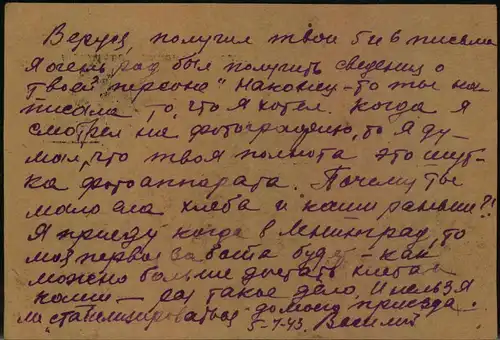 Веруся, получил твои 5 и 6 письма
Я очень рад был получить сведения о
твоей "персоне" Наконец-то ты на-
писала то, что я хотел. Когда я
смотрел на фотографию, то я ду-
мал, что твоя полнота это шут-
ка фотоаппарата. Почему ты
мало ела хлеба и каши раньше?!
Я приеду когда в Ленинград, то
моя первая забота будет - как
можно больше достать хлеба и
каши — раз такое дело. И нельзя
ли "стабилизироваться" до моего приезда.
5-7-43. Василий